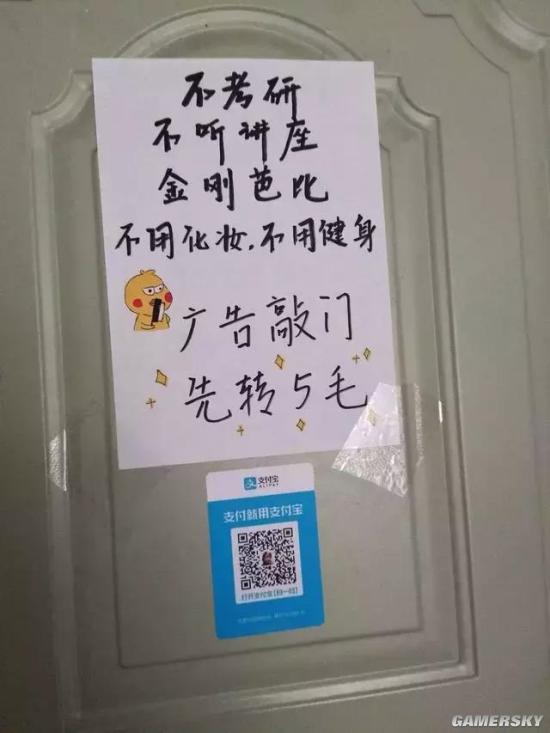 不考研
不听讲座
金刚芭比
不用化妆.不用健身
广告敲门
先转5毛
支 支付宝
ALIPAY
支付就用支付宝
打开支付宝[扫一扫]
GAMERSKY